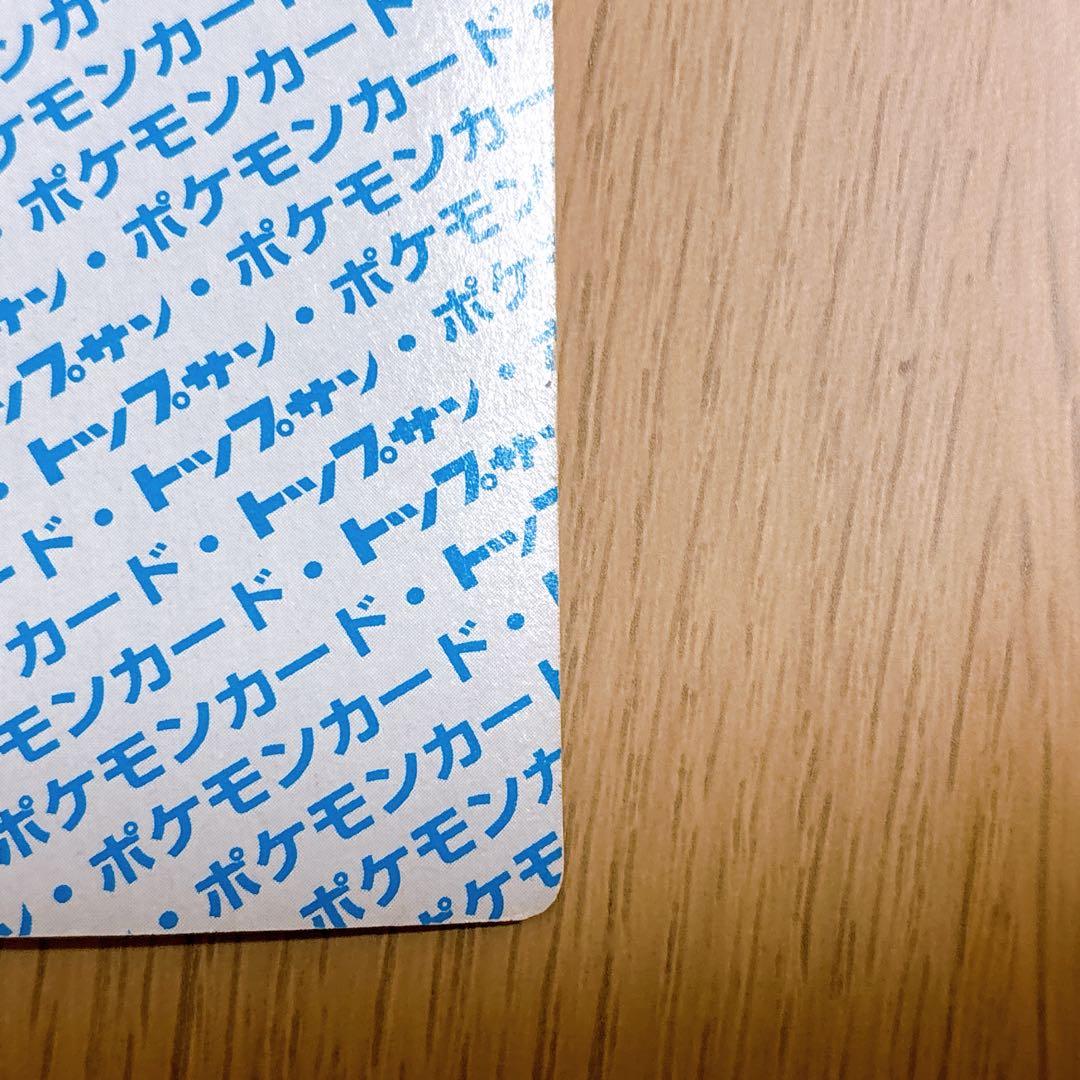 ンカ
ケモンカー
・ポケモンカード
サン・ポケモンカード・
ップサン・ポケモンカー
・トップサン・ポケモン
ード・トップサン・ポケ
カード・トップサン・
モンカード・トップサ
ポケモンカード・トップ
ン・ポケモンカード・
・ポケモンカー
ポケモンカ
ポケモ